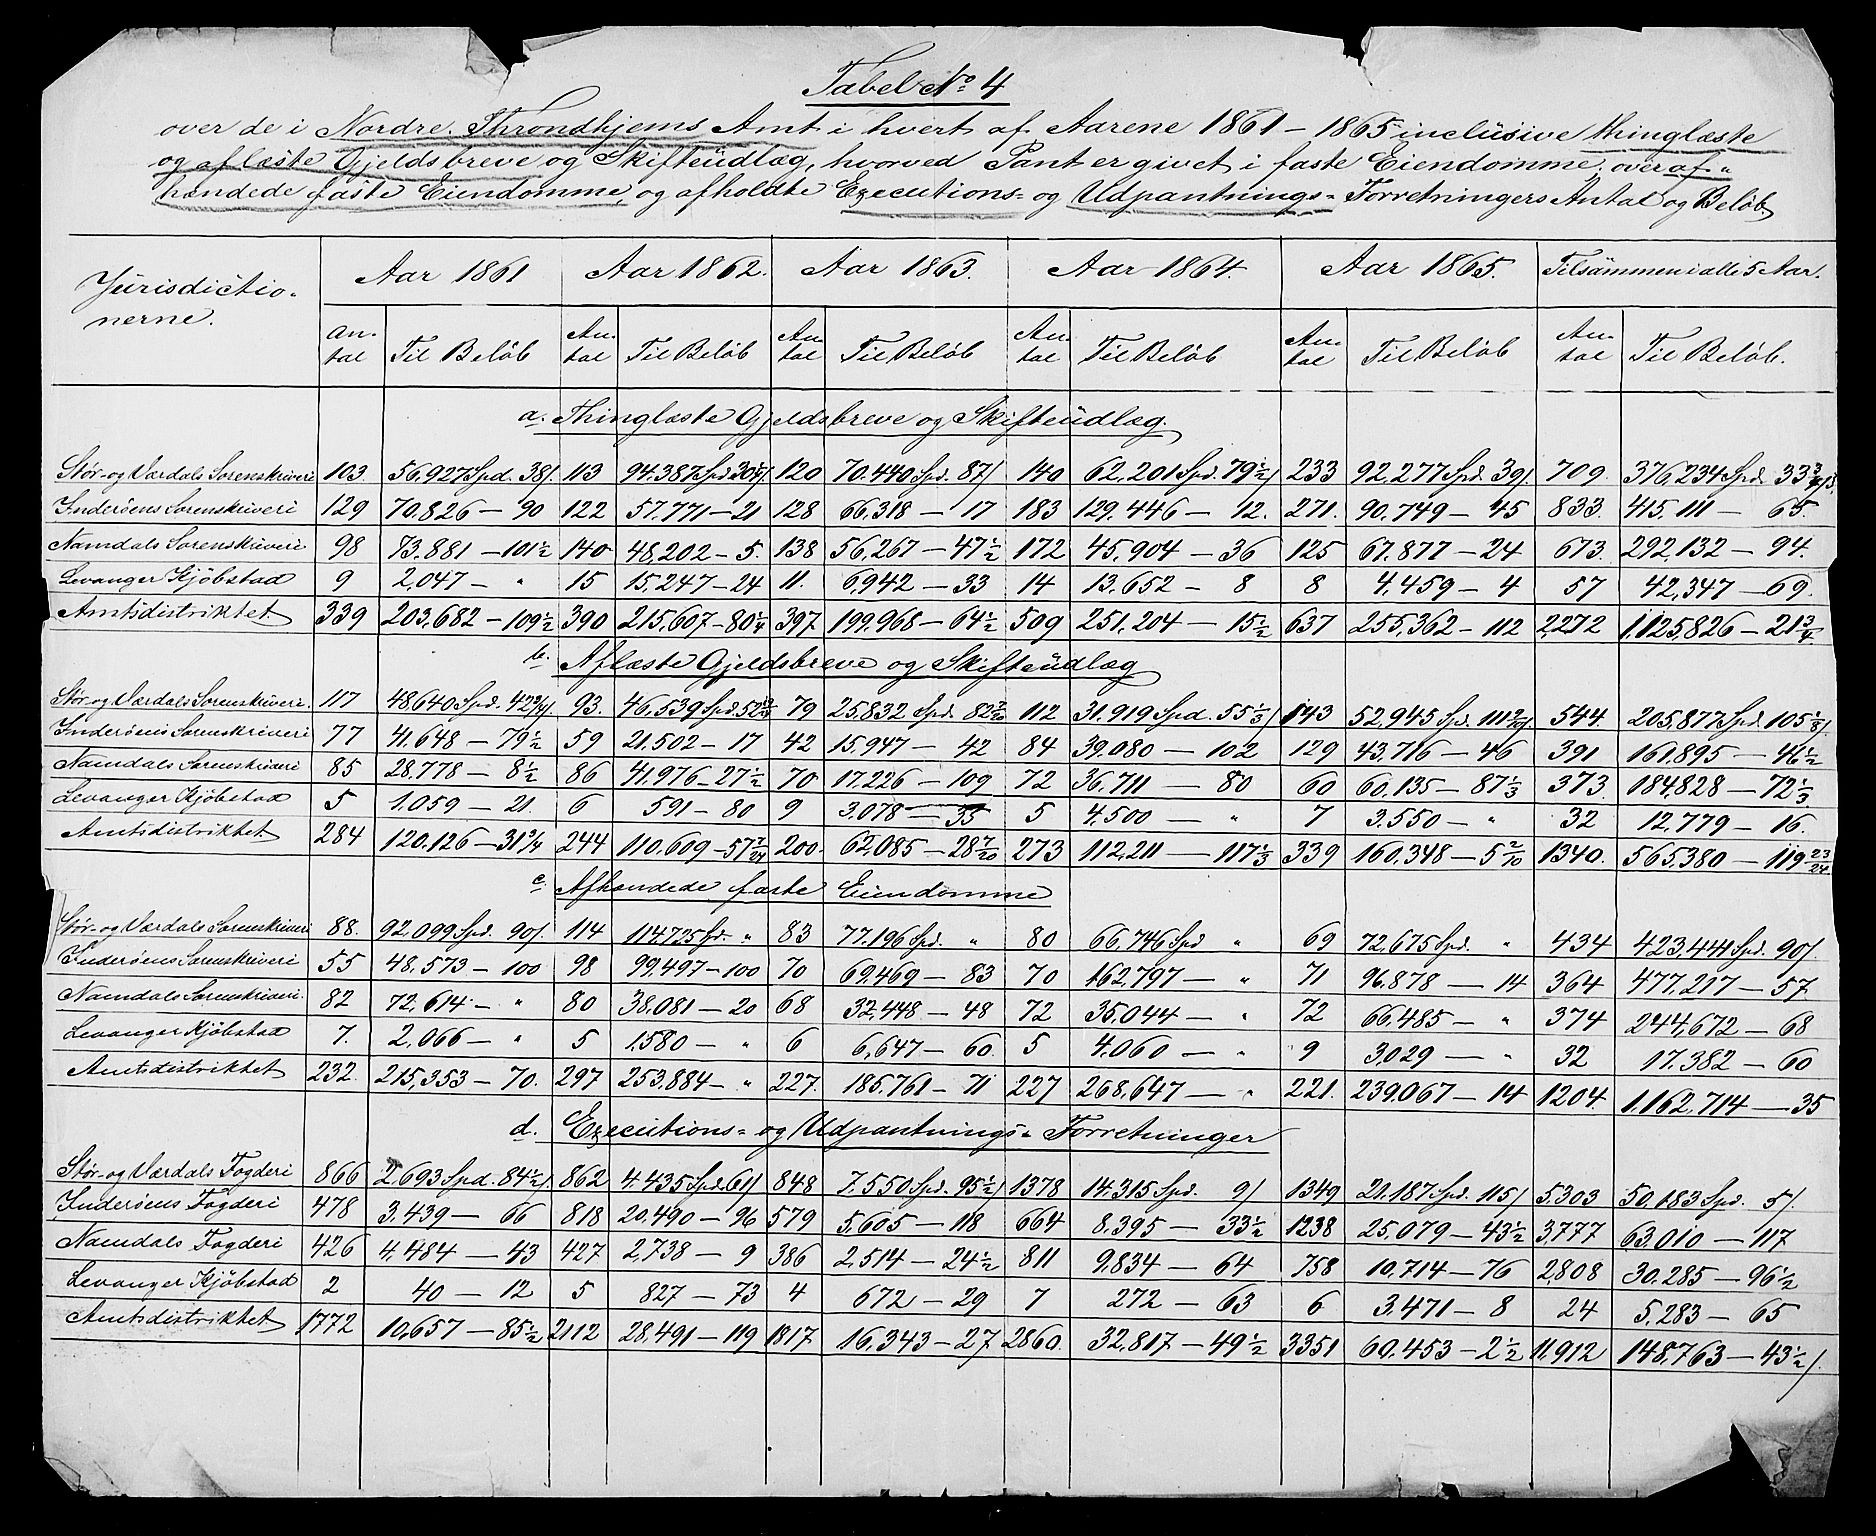 Tabel No 4
over de i Nordre Throndhjems Amt i hvert af Aarene 1861 – 1865 inclusive thinglæste
og aflæste Gjeldsbreve og Skifteudlæg, hvorved Pant er givet i faste Eiendomme, over af-
hændede faste Eiendomme, og afholdte Executions- og Udpantnings- Forretningers Antal og Beløb.
Jurisdictio- Aar 1861 Aar 1862. Aar 1863. Aar 1864. Aar 1865. Tilsammen i alle 5 Aar.
nerne.
An- tal Til Beløb An- tal Til Beløb An- tal Til Beløb An- tal Til Beløb An- tal Til Beløb An- tal Til Beløb.
a. Thinglæste Gjeldsbreve og Skifteudlæg.
Stør- og Værdals Sorenskriveri 103. 56.927 Spd. 38/. 113 94.387 Spd 30 1/4/. 120 70.440 Spd. 87/ 140 62,201 Spd. 79 1/2/ 233 92,277 Spd. 39/. 709. 376,234 Spd. 33 3/4 /3.
Inderøens Sorenskriveri 129 70.826 – 90 122 57.771 – 21 128 66,318 – 17 183 129.446 – 12. 271. 90.749 – 45 833. 415.111 – 65.
Namdals Sorenskriveri 98 73.881 – 101 1/2 140 48,202 – 5. 138 56,267 – 47 1/2 172 45,904 – 36 125 67.877 – 24 673. 292,132 – 94.
Levanger Kjøbstad 9 2,047 – " 15 15,247 – 24 11. 6,942 – 33 14 13.652 – 8 8 4,459 – 4 57 42,347 – 69.
Amtsdistriktet 339 203,682 – 109 1/2 390 215,607 – 80 1/4 397 199,968 – 64 1/2 509 251,204 – 15 1/2 637 255,362 – 112 2272 1,125,826 – 21 3/4
b. Aflæste Gjeldsbreve og Skifteudlæg
Stør- og Værdals Sorenskriveri. 117 48640 Spd. 93. 46,539 Spd. 79 25,832 Spd. 112 31.919 Spd. 55 1/3/ 143 52,945 Spd. 544. 205,877 Spd.
Inderøens Sorenskriveri 77 41.648 – 79 1/2 59 21.502 – 17 42 15,947 – 42 84 39,080 – 102 129 43,716 – 46 391 161,895 – 46 1/2
Namdals Sorenskriveri 85 28.778 – 8 1/2 86 41,976 – 27 1/2 70 17.226 – 109 72 36,711 – 80 60 60,135 – 87 1/3 373 184,828 – 72 1/3
Levanger Kjøbstad 5 1.059 – 21 6 591 – 80 9 3.078 – 35 5 4.500 – " 7 3.550 – " 32 12,779 – 16.
Amtsdistriktet 284 120.126 – 31 3/4 244 110,609 – 57 7/24 200. 62,085 – 28 7/20 273 112,211 – 117 1/3 339 160,348 – 5 2/10 1340. 565,380 – 119 23/24
c. Afhændede faste Eiendomme
Stør- og Værdals Sorenskriveri 88. 92,099 Spd. 90/. 114 114.725 Spd. " 83 77,196 Spd. " 80 66,746 Spd " 69 72,675 Spd. " 434 423,441 Spd. 90/
Inderøens Sorenskriveri 55 48,573 – 100 98 99.497 – 100 70 69,469 – 83 70 162,797 – " 71 96,878 – 14 364 477,217 – 57
Namdals Sorenskriveri. 82 72,614 – " 80 38,081 – 20 68 32,448 – 48 72 35,044 – " 72 66,485 – " 374 244,672 – 68
Levanger Kjøbstad 7. 2,066 – " 5 1,580 – " 6 6,647 – 60. 5 4,060 – " 9 3,029 – " 32 17,382 – 60
Amtsdistriktet 232. 215,353 – 70. 297 253,884 – " 227. 185,761 – 71 227 268,647 – " 221. 239,067 – 14 1204. 1,162,714 – 35
d. Executions- og Udpantnings- Forretninger
Stør- og Værdals Fogderi 866 2,693 Spd. 84 1/2/. 862 4.435 Spd. 61/ 848 7.550 Spd. 95 1/2/ 1378 14.315 Spd. 9/ 1349 21.187 Spd. 115/ 5,303 50,183 Spd. 5/.
Inderøens Fogderi 478 3.439 – 66 818 20,490 – 96 579 5,605 – 118 664 8,395 – 33 1/2 1238 25,079 – 43 1/2 3,777 63,010 – 117
Namdals Fogderi 426 4,484 – 43 427 2,738 – 9 386 2,514 – 24 1/2 811 9,834 – 64 758 10,714 – 76 2,808 30,285 – 96 1/2
Levanger Kjøbstad 2 40 – 12 5 827 – 73 4 672 – 29 7 272 – 63 6 3.471 – 8 24 5,283 – 65
Amtsdistriktet 1772 10,657 – 85 1/2 2112 28,491 – 119 1817 16,343 – 27 2860. 32,817 – 49 1/2 3351 60,453 – 2 1/2 11,912 148,763 – 43 1/2/.